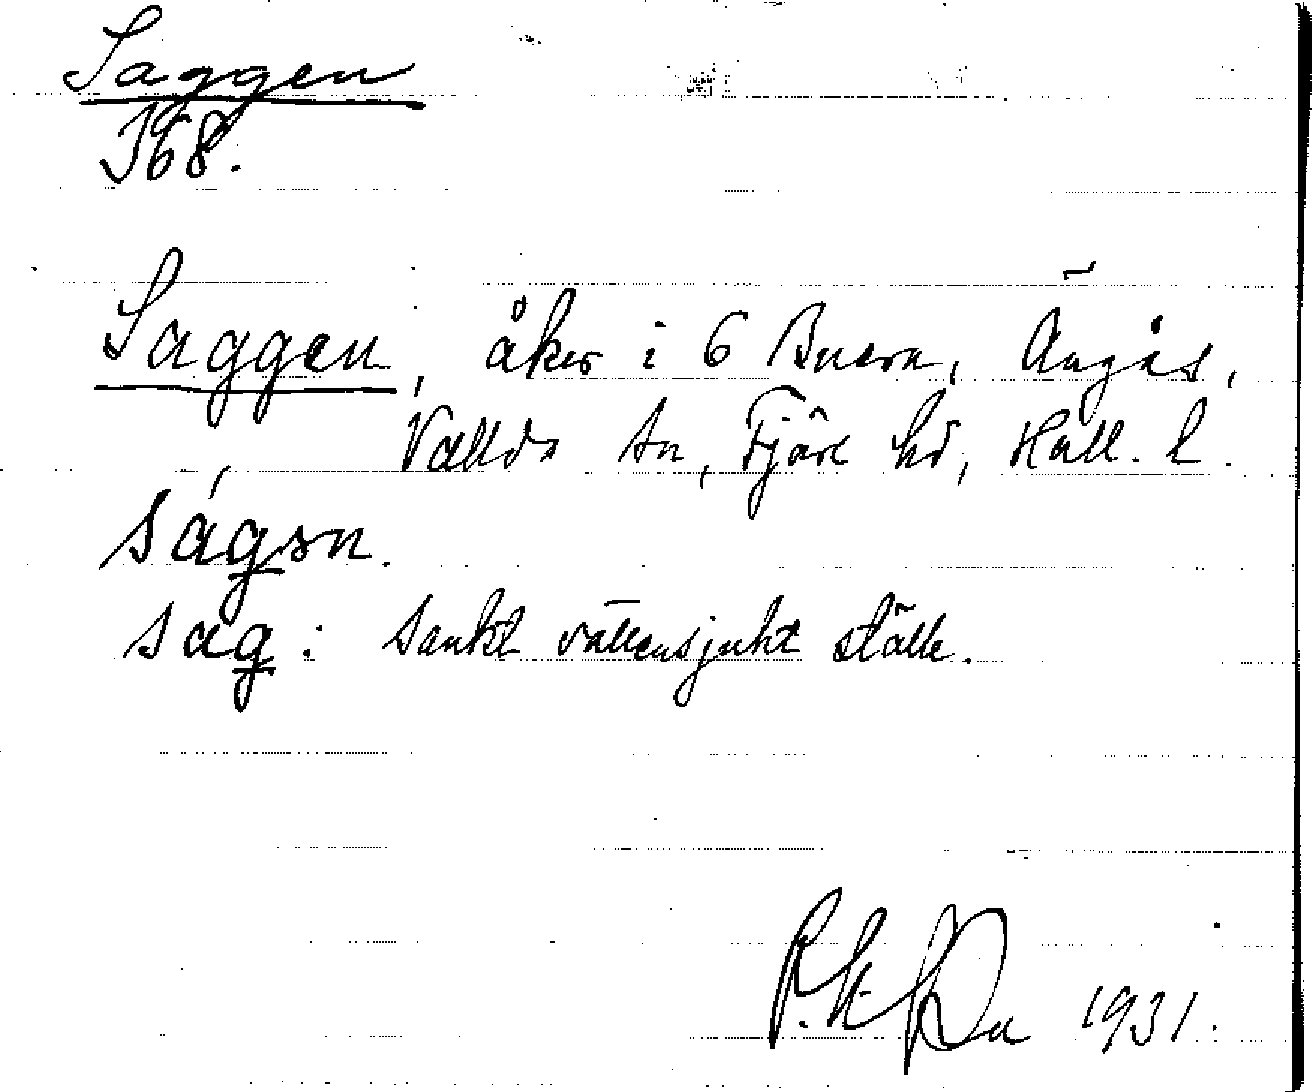 Saggen
J68.
Saggen, åker i 6 Buera, Ängås,
Vallda sn, Fjäre hd, Hall. l.
ságən.
sag: sankt vattensjukt ställe.
1931.